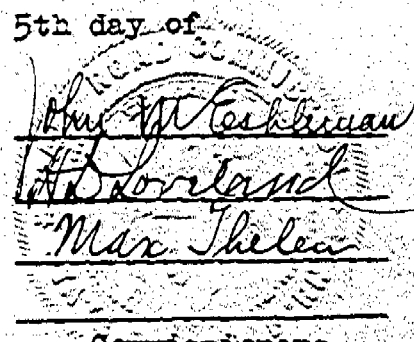 5th day of
John M Eshleman
H D Loveland
Max Thelen
Commissioners